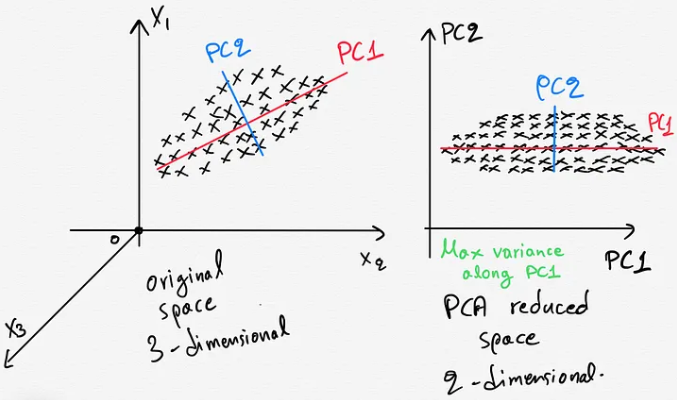 X₁
PC2
PC1
0
X₂
X₃
original
space
3-dimensional
PC2
PC2
PC1
PC1
Max variance
along PC1
PCA reduced
space
2-dimensional.